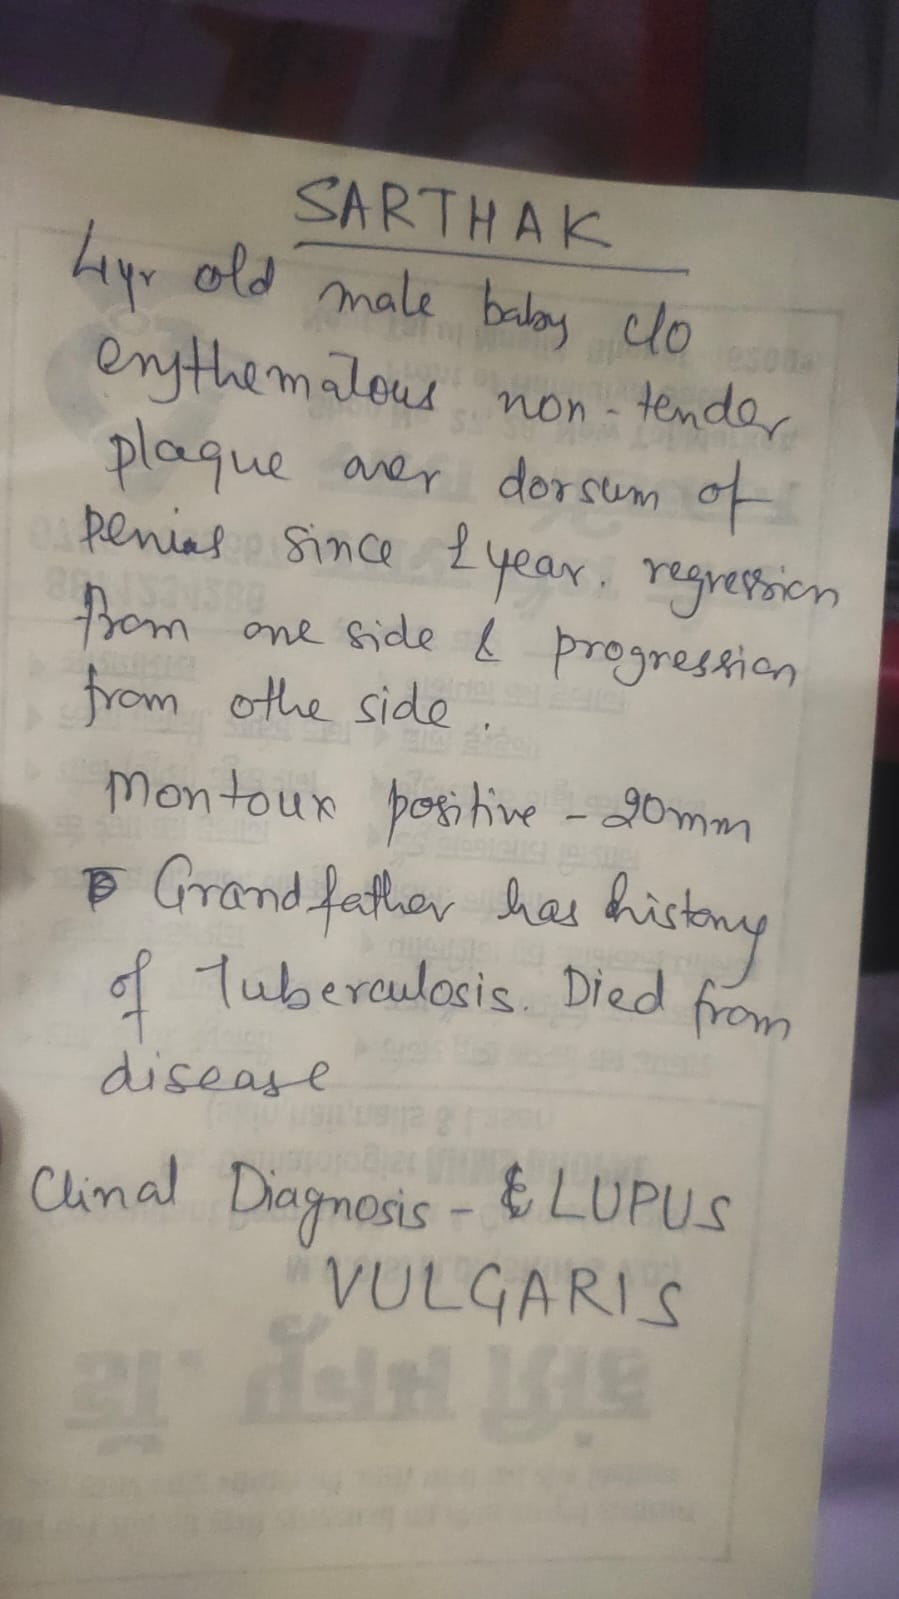 SARTHAK
4yr old male baby c/o
erythematous non-tender
plaque over dorsum of
penias since 1 year. regression
from one side & progression
from othe side.
Montoux positive - 20mm
Grandfather has history
of Tuberculosis. Died from
disease
Clinal Diagnosis - LUPUS
VULGARIS